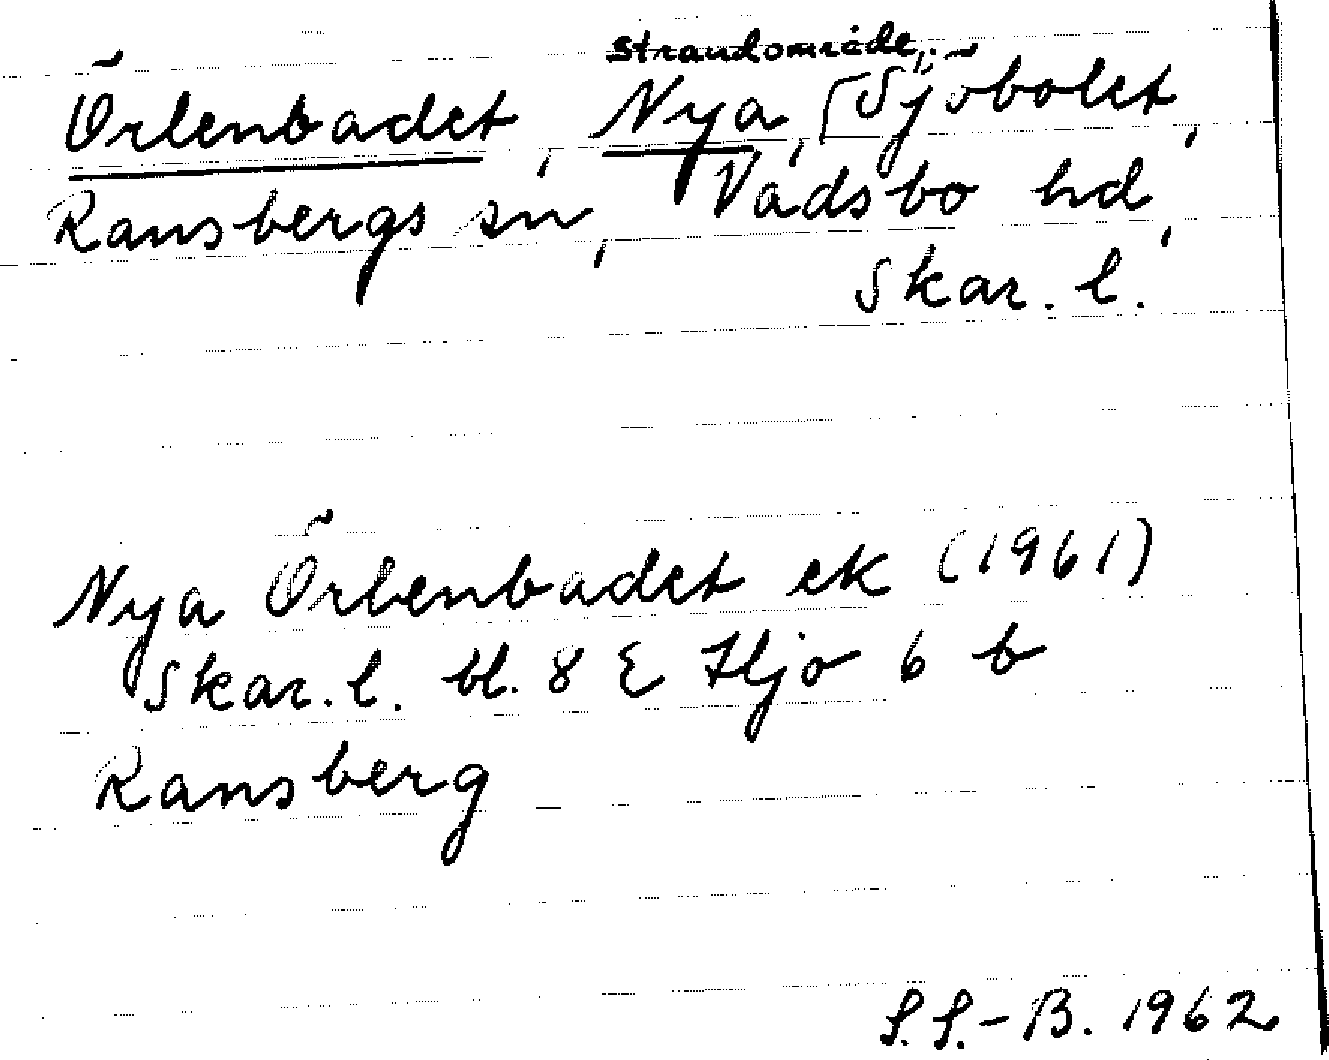 strandområde,
Örlenbadet, Nya, [Sjöbolet,
Ransbergs sn, Vadsbo hd,
Skar. l.
Nya Örlenbadet ek (1961)
Skar. l. bl. 8 E Hjo 6 b
Ransberg
S.S.-B. 1962